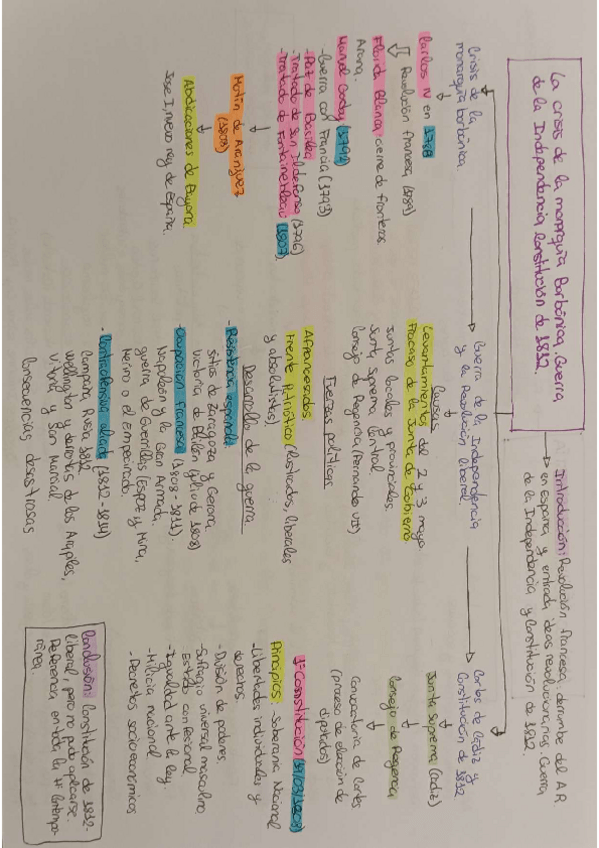 La crisis de la monarquía Borbónica, Guerra
de la Independencia. Constitución de 1812.
Introducción: Revolución francesa: derrumbe del AR
→ en España y entrada ideas revolucionarias: Guerra
de la Independencia y Constitución de 1812.
Crisis de la
monarquía borbónica
Carlos IV en 1788
Revolución francesa (1789)
Florida Blanca: cierre de fronteras
Manuel Godoy (1792)
-Guerra con Francia (1793)
-Paz de Basilea
-Tratado de San Ildefonso (1796)
-Tratado de Fontainebleau (1807)
Motín de Aranjuez
(1808)
Abdicaciones de Bayona
José I, nuevo rey de España.
Guerra de la Independencia
y la Revolución liberal
Causas
Levantamientos del 2 y 3 mayo
Fracaso de la Junta de Gobierno
Juntas locales y provinciales.
Junta Suprema Central
Consejo de Regencia (Fernando VII)
Fuerzas políticas
Afrancesados
Frente Patriótico (ilustrados, liberales
y absolutistas)
Desarrollo de la guerra
-Resistencia española:
sitios de Zaragoza y Gerona
victoria de Bailén (julio de 1808)
-ocupación francesa (1808-1811).
Napoleón y la Gran Armada.
guerra de Guerrillas (Espoz y Mina,
Merino o el empecinado.
-Contraofensiva aliada (1812-1814)
Campaña Rusia 1812
Wellington y derrotas de los Arapiles,
Vitoria y San Marcial
Consecuencias desastrosas
Cortes de Cádiz y
Constitución de 1812
Junta Suprema (Cádiz)
Consejo de Regencia
Convocatoria de Cortes
(proceso de elección de
diputados)
1ª Constitución (19/03/1808)
Principios: -Soberanía Nacional
-Libertades individuales y
derechos.
-División de poderes
-Sufragio universal masculino
Estado confesional
-Igualdad ante la ley
-Milicia nacional
-Decretos socioeconómicos
Conclusión: Constitución de 1812-
liberal, pero no pudo aplicarse.
Referencia en toda la Hª Contempo-
ránea.